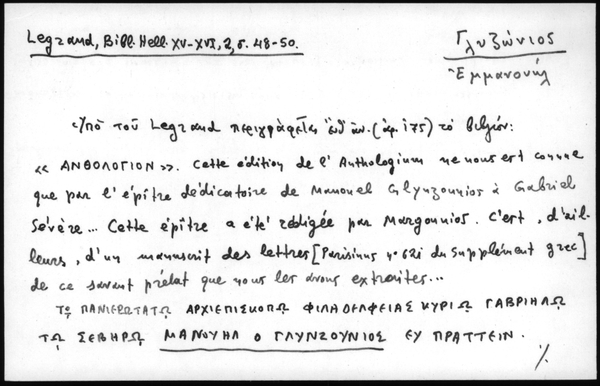 Legrand, Bibl. Hell. XV-XVI, 2, σ. 48-50.
Γλυζώνιος
Ἐμμανουήλ
Ὑπὸ τοῦ Legrand περιγράφεται ἐνθ' ἀν. (ἀρ. 175) τὸ βιβλίον:
« ΑΝΘΟΛΟΓΙΟΝ ». Cette édition de l'Anthologium ne nous est connue
que par l'épître dédicatoire de Manouel Glynzounios à Gabriel
Sévère... Cette épître a été rédigée par Margounios. C'est, d'ail-
leurs, d'un manuscrit des lettres [Parisinus nº 621 du Supplément grec]
de ce savant prélat que nous les avons extraites...
ΤΩ ΠΑΝΙΕΡΩΤΑΤΩ ΑΡΧΙΕΠΙΣΚΟΠΩ ΦΙΛΑΔΕΛΦΕΙΑΣ ΚΥΡΙΩ ΓΑΒΡΙΗΛΩ
ΤΩ ΣΕΒΗΡΩ ΜΑΝΟΥΗΛ Ο ΓΛΥΝΖΟΥΝΙΟΣ ΕΥ ΠΡΑΤΤΕΙΝ.
./.